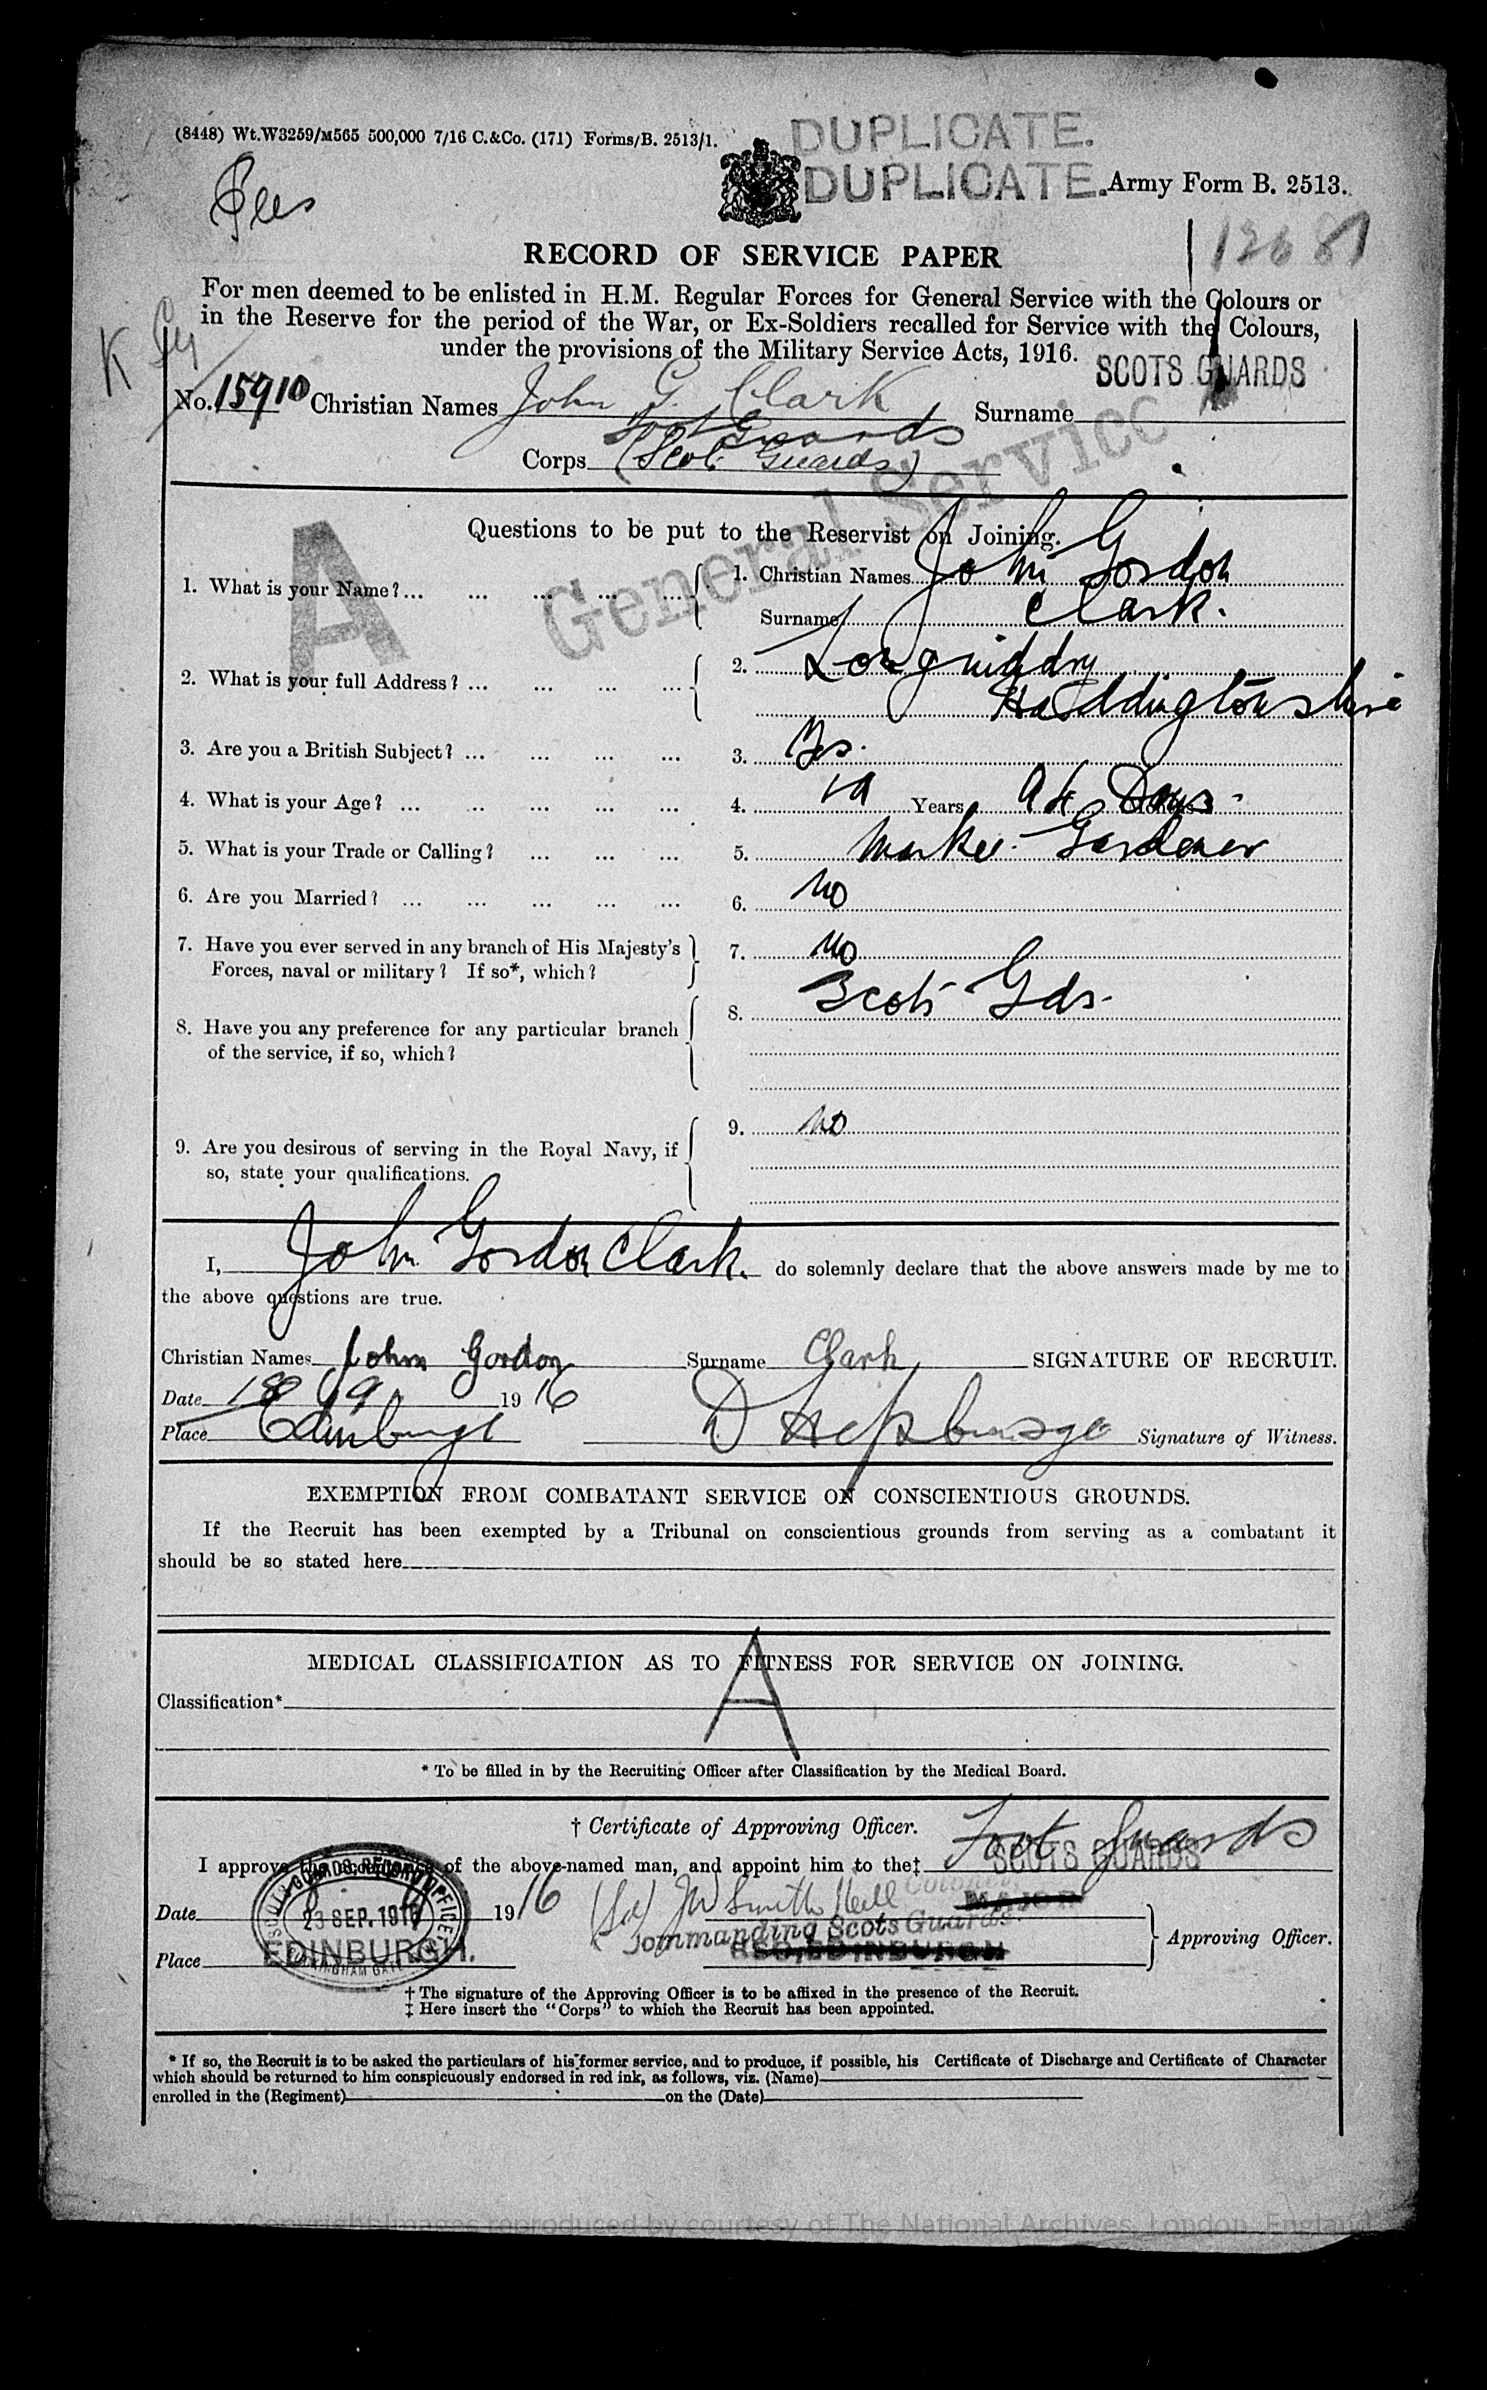 (8448) Wt.W3259/M565 500,000 7/16 C.&Co. (171) Forms/B. 2513/1.
DUPLICATE.
DUPLICATE.
Army Form B. 2513.
RECORD OF SERVICE PAPER
For men deemed to be enlisted in H.M. Regular Forces for General Service with the Colours or
in the Reserve for the period of the War, or Ex-Soldiers recalled for Service with the Colours,
under the provisions of the Military Service Acts, 1916.
SCOTS GUARDS
No. 15910 Christian Names John G. Clark Surname
Foot Guards
Corps (Scots Guards)
General Service
A
Questions to be put to the Reservist on Joining.
1. What is your Name?... ... ... ... ... 1. Christian Names John Gordon
Surname Clark.
2. What is your full Address? ... ... ... ... 2. Longniddry
Haddingtonshire
3. Are you a British Subject? ... ... ... ... 3. Yes.
4. What is your Age? ... ... ... ... ... 4. Years Days
5. What is your Trade or Calling? ... ... ... 5. Market Gardener
6. Are you Married? ... ... ... ... ... 6. No
7. Have you ever served in any branch of His Majesty's 7. No
Forces, naval or military? If so*, which?
8. Have you any preference for any particular branch 8. Scots Gds.
of the service, if so, which?
9. Are you desirous of serving in the Royal Navy, if 9. No
so, state your qualifications.
I, John Gordon Clark. do solemnly declare that the above answers made by me to
the above questions are true.
Christian Names John Gordon Surname Clark SIGNATURE OF RECRUIT.
Date 18 9 1916
Place Edinburgh D Hepburn Signature of Witness.
EXEMPTION FROM COMBATANT SERVICE ON CONSCIENTIOUS GROUNDS.
If the Recruit has been exempted by a Tribunal on conscientious grounds from serving as a combatant it
should be so stated here
MEDICAL CLASSIFICATION AS TO FITNESS FOR SERVICE ON JOINING.
Classification* A
* To be filled in by the Recruiting Officer after Classification by the Medical Board.
† Certificate of Approving Officer.
I approve the acceptance of the above-named man, and appoint him to the‡ Foot Guards
SCOTS GUARDS
Date 23 SEP. 1916 1916 (Sd) JW Smith Neill Colonel MAJOR
Commanding Scots Guards.
Place EDINBURGH. Approving Officer.
† The signature of the Approving Officer is to be affixed in the presence of the Recruit.
‡ Here insert the "Corps" to which the Recruit has been appointed.
* If so, the Recruit is to be asked the particulars of his former service, and to produce, if possible, his Certificate of Discharge and Certificate of Character
which should be returned to him conspicuously endorsed in red ink, as follows, viz. (Name)
enrolled in the (Regiment) on the (Date)
Crown Copyright Images reproduced by courtesy of The National Archives, London, England